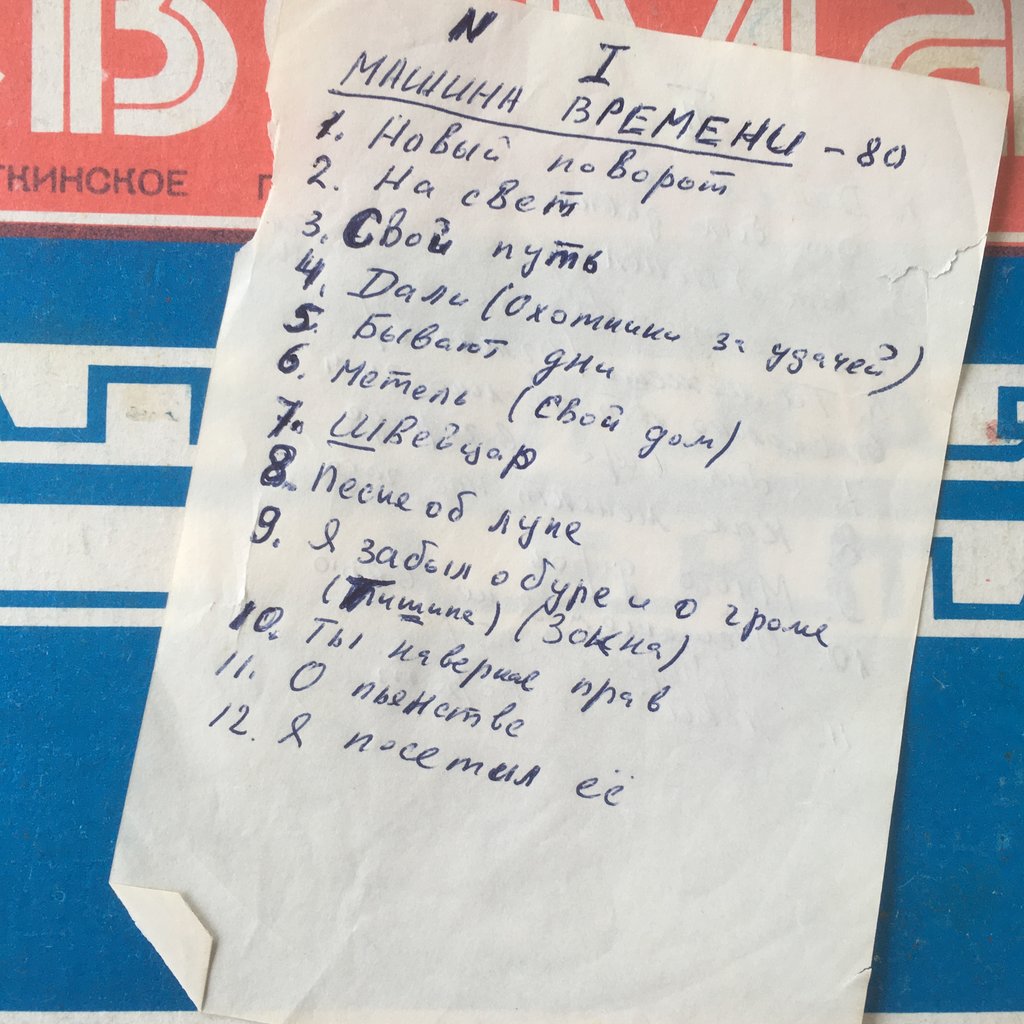 СВЕМА
ТКИНСКОЕ П
N I
МАШИНА ВРЕМЕНИ - 80
1. Новый поворот
2. На свет
3. Свой путь
4. Дали (Охотники за удачей)
5. Бывают дни
6. Метель (Свой дом)
7. Швейцар
8. Песне об луне
9. Я забыл о буре и о громе
(Тишине) (3 окна)
10. Ты наверное прав
11. О пьянстве
12. Я посетил её